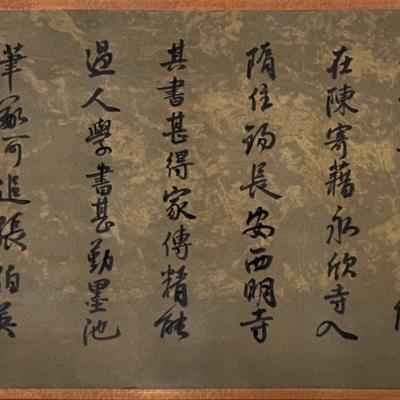 在陳寄藉永欣寺入
隋住錫長安西明寺
其書甚得家傳精能
過人學書甚勤墨池
筆冢可追張伯英